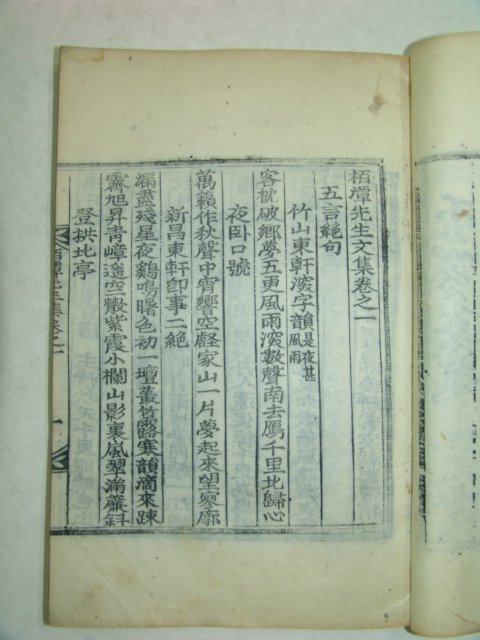 栢潭先生文集卷之一
五言絶句
竹山東軒深字韻 是夜甚風雨
客枕破鄕夢五更風雨深數聲南去鴈千里北歸心
夜臥口號
萬籟作秋聲中宵響空壑家山一片夢起來望寥廓
新昌東軒卽事二絶
漏盡殘星夜鷄鳴曙色初一壇叢竹露寒韻滴來踈
霽旭昇靑嶂遙空散紫霞小欄山影裏嵐翠滿簾斜
登拱北亭
栢潭先生集卷之一 一